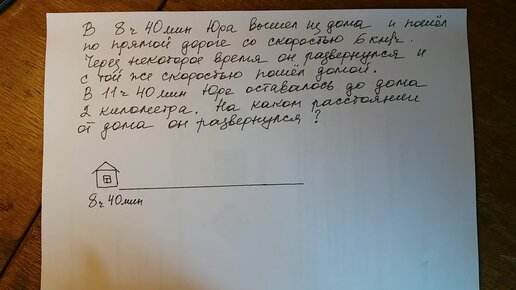 В 8ч 40мин Юра вышел из дома и пошёл
по прямой дороге со скоростью 6 км/ч.
Через некоторое время он развернулся и
с той же скоростью пошёл домой.
В 11ч 40мин Юре оставалось до дома
2 километра. На каком расстоянии
от дома он развернулся?
8ч 40мин